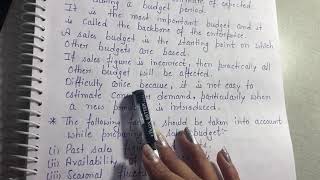 during a budget period.
It is the most important budget and it
is called the backbone of the enterprise.
A sales budget is the starting point on which
Other budgets are based.
If sales figure is incorrect, then practically all
Other budget will be affected.
Difficulty arise because, it is not easy to
estimate demand, particularly when
a new is introduced.
* The following should be taken into account
while sales budget:-
(i) Past sales
(ii) Availability
(iii) Seasonal